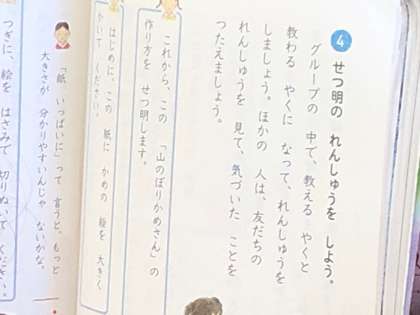 4 せつ明の れんしゅうを しよう。
グループの 中で、教える やくと
教わる やくに なって、れんしゅうを
しましょう。ほかの 人は、友だちの
れんしゅうを 見て、気づいた ことを
つたえましょう。
これから、この 「山のぼりかめさん」の
作り方を せつ明します。
はじめに、この 紙に かめの 絵を 大きく
かいて ください。
「紙 いっぱいに」って 言うと、もっと
大きさが 分かりやすいんじゃ ないかな。
つぎに、絵を はさみで 切りぬいて ください。